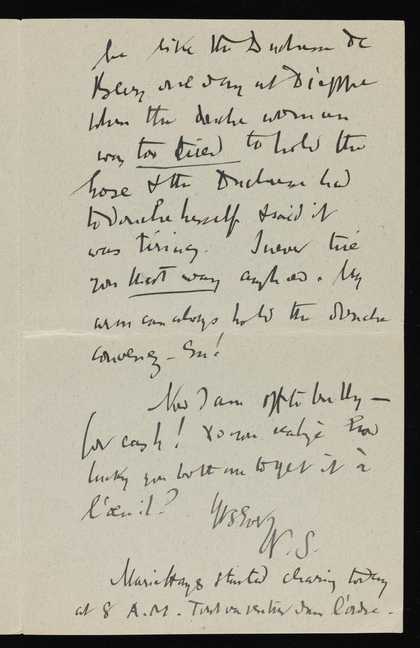 be like the Duchesse de
Berry one day at Dieppe
when the douche woman
was too tired to hold the
hose & the Duchesse had
to douche herself & said it
was tiring. I never tire
you that way anyhow. My
arm can always hold the douche
Now I am off to bully —
for cash! Do you realize how
lucky you both are to get it à
l'oeuil?
Yrs Ever
N. S.
started charing today
at 8 A.M. Tout va rentrer dans l'ordre.